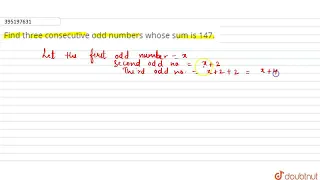 395197631
Find three consecutive odd numbers whose sum is 147.
Let the first odd number = x
Second odd no. = x+2
Third odd no. = x+2+2 = x+4
doubtnut